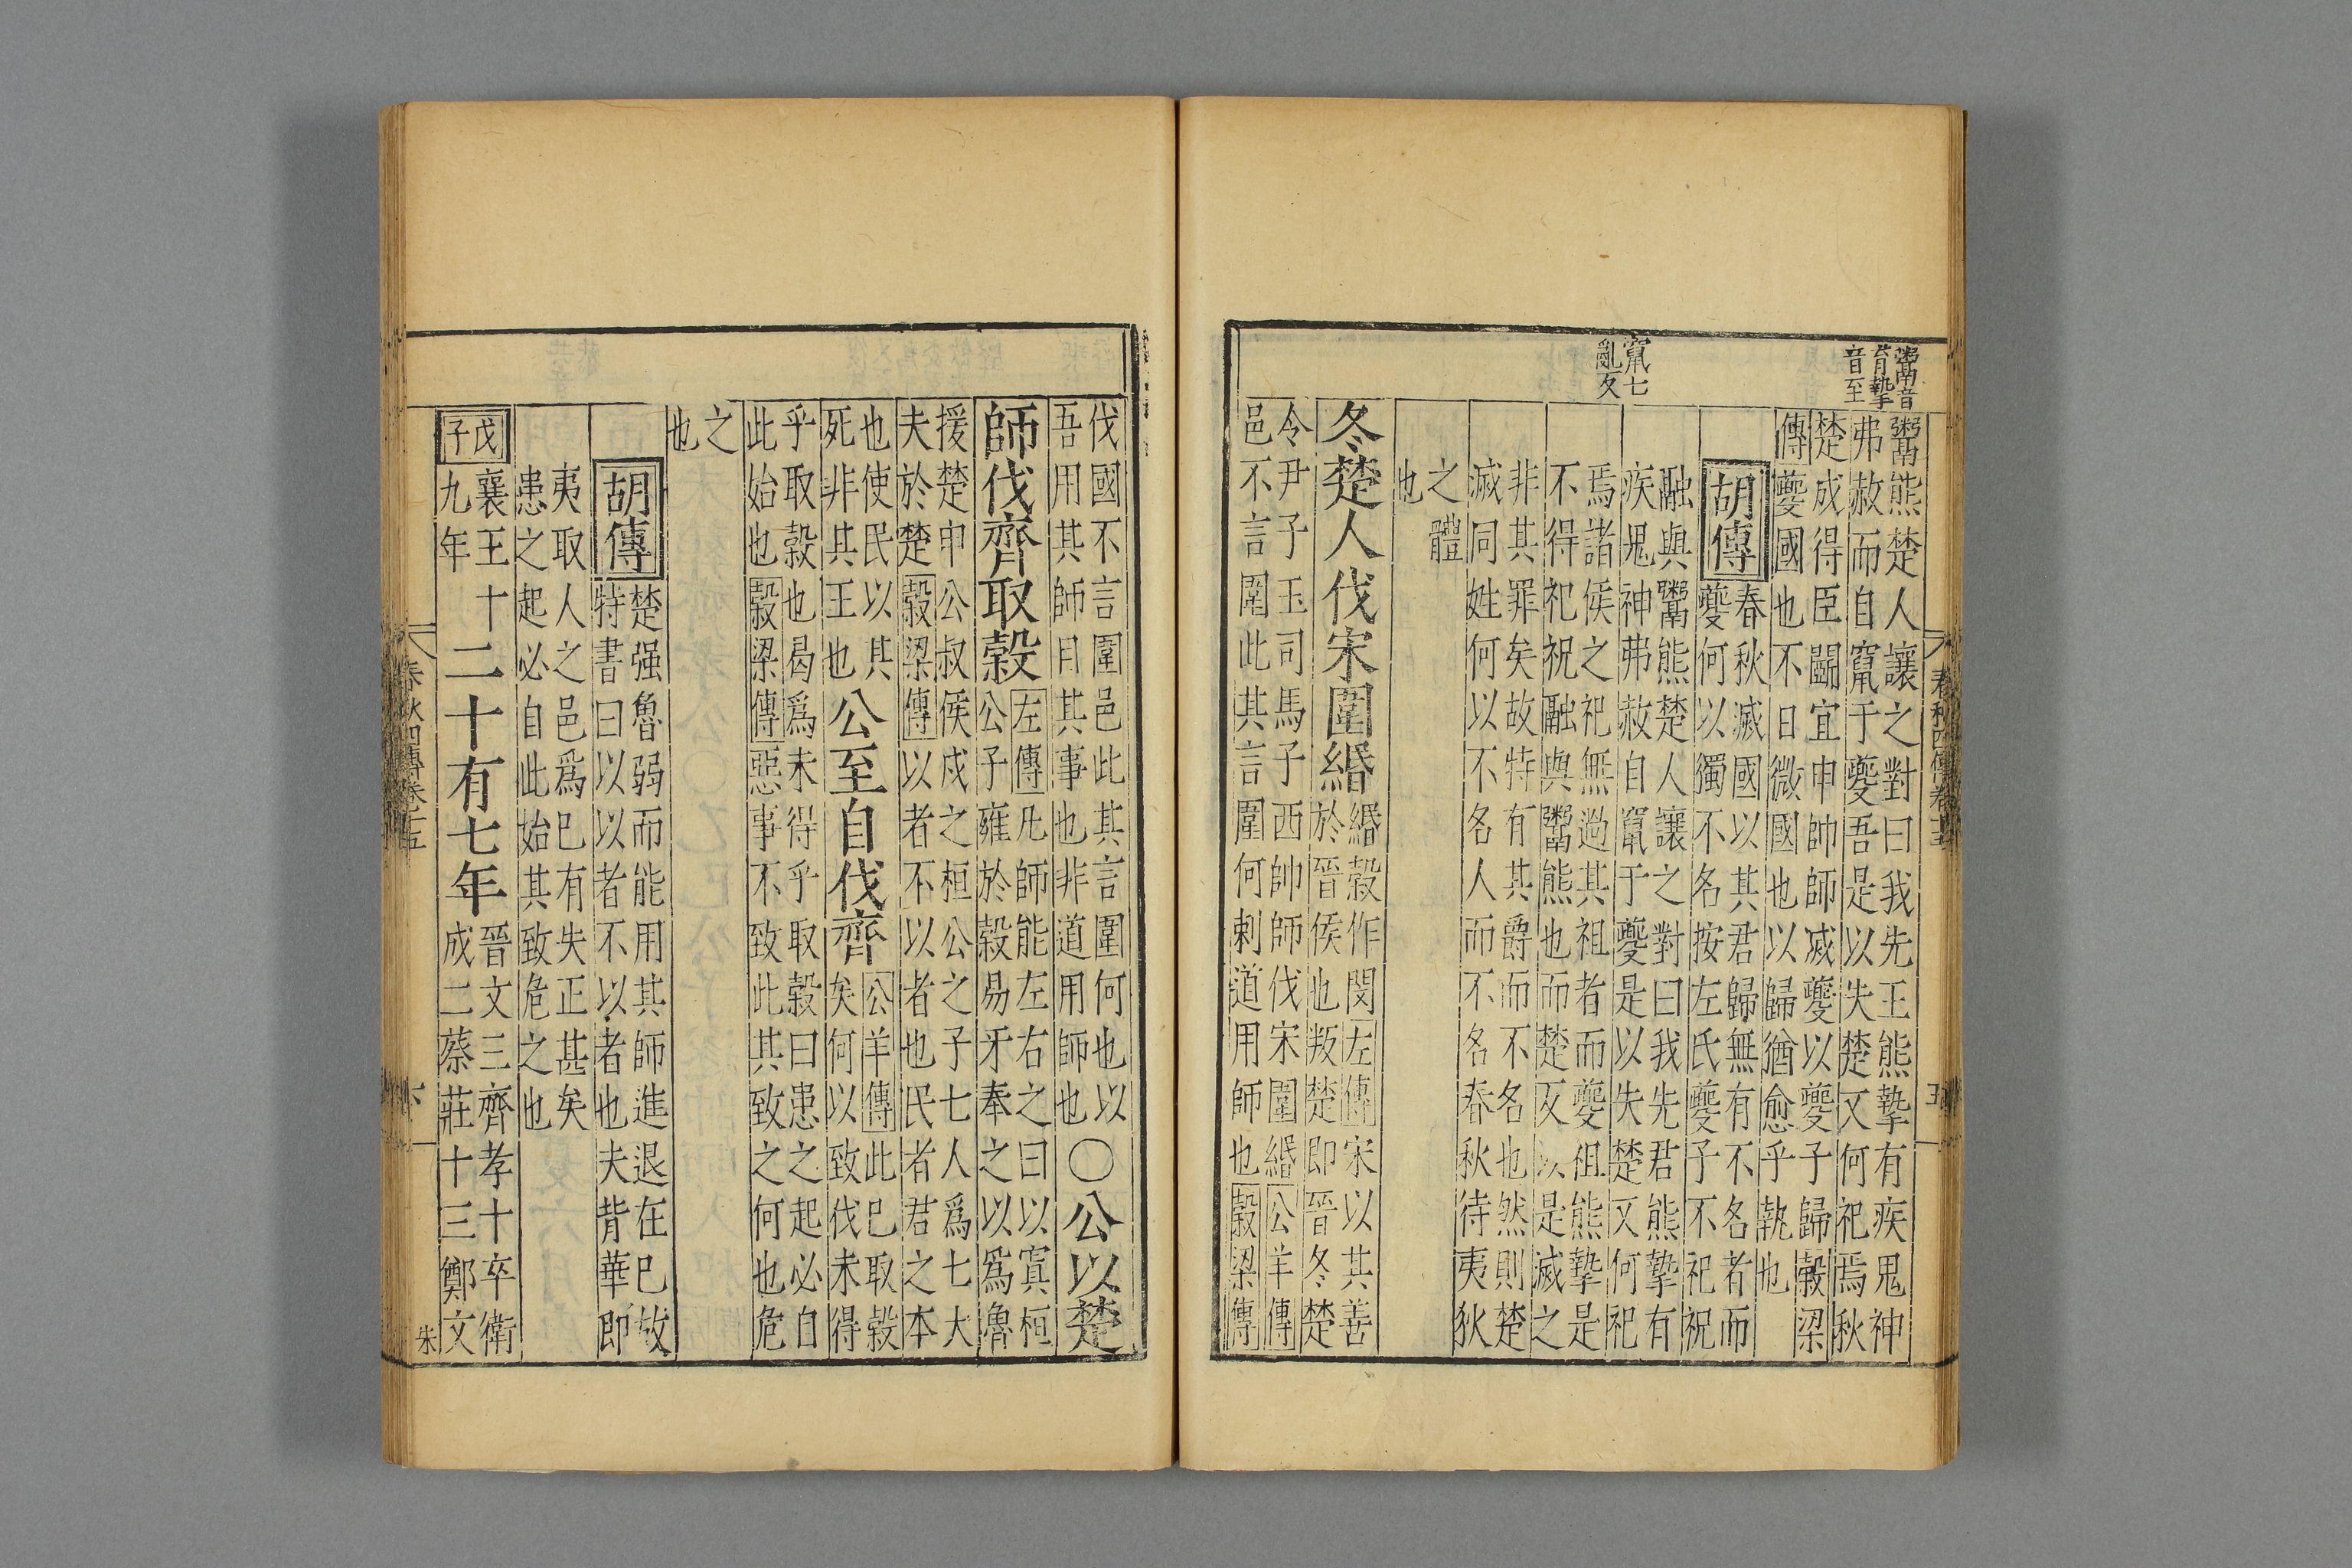 鬻音
育摯
音至
竄七
亂反
鬻熊楚人讓之對曰我先王熊摯有疾鬼神
弗赦而自竄于夔吾是以失楚又何祀焉秋
楚成得臣鬭宜申帥師滅夔以夔子歸穀梁
傳夔國也不日微國也以歸猶愈乎執也
胡傳
春秋滅國以其君歸無有不名者而
夔何以獨不名按左氏夔子不祀祝
融與鬻熊楚人讓之對曰我先君熊摯有
疾鬼神弗赦自竄于夔是以失楚又何祀
焉諸侯之祀無過其祖者而夔祖熊摯是
不得祀祝融與鬻熊也而楚反以是滅之
非其罪矣故特有其爵而不名也然則楚
滅同姓何以不名人而不名春秋待夷狄
之體
也
冬楚人伐宋圍緡
緡穀作閔左傳宋以其善
於晉侯也叛楚即晉冬楚
令尹子玉司馬子西帥師伐宋圍緡公羊傳
邑不言圍此其言圍何刺道用師也穀梁傳
春秋四傳卷十五
五
伐國不言圍邑此其言圍何也以
吾用其師目其事也非道用師也
○公以楚
師伐齊取穀
左傳凡師能左右之曰以寘桓
公子雍於穀易牙奉之以為魯
援楚申公叔侯戍之桓公之子七人為七大
夫於楚穀梁傳以者不以者也民者君之本
也使民以其
死非其王也
公至自伐齊
公羊傳此已取穀
矣何以致伐未得
乎取穀也曷為未得乎取穀曰患之起必自
此始也穀梁傳惡事不致此其致之何也危
之
也
胡傳
楚强魯弱而能用其師進退在已故
特書曰以以者不以者也夫背華即
夷取人之邑為已有失正甚矣
患之起必自此始其致危之也
戊子
襄王十
九年
二十有七年
晉文三齊孝十卒衛
成二蔡莊十三鄭文
春秋四傳卷十五
朱